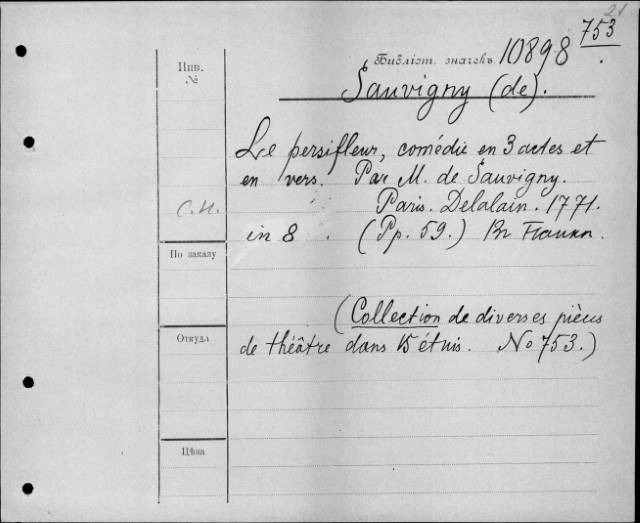 21
753
Инв. №
Библіот. значекъ 10898
Sauvigny (de).
Le persifleur, comédie en 3 actes et
en vers. Par M. de Sauvigny.
С.Н. Paris. Delalain. 1771.
in 8 . (Pp. 59.) Въ Папки.
По заказу
(Collection de diverses pièces
Откуда
de théâtre dans 15 étuis. No 753.)
Цѣна